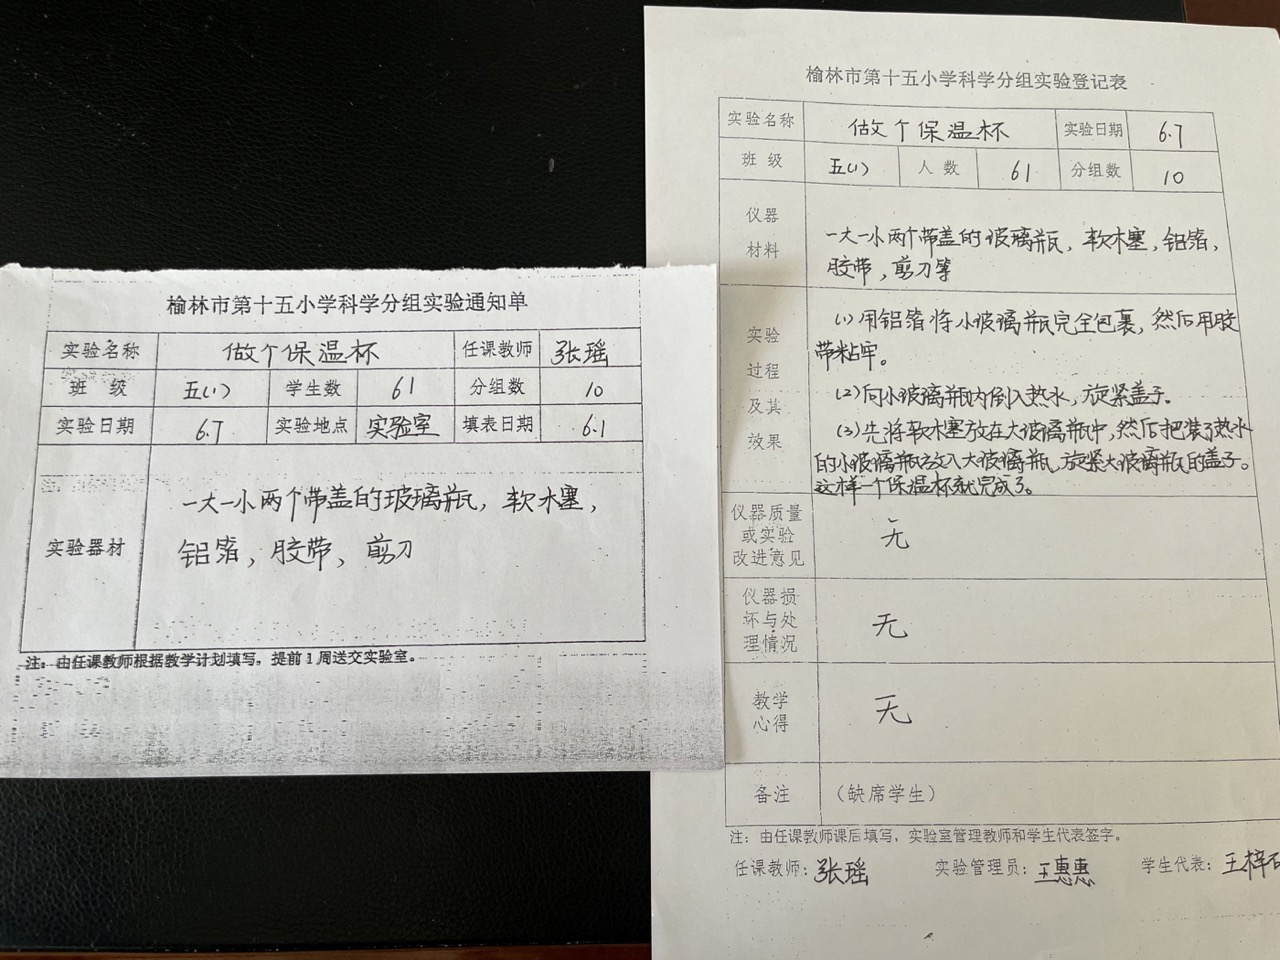 榆林市第十五小学科学分组实验通知单
实验名称 做个保温杯 任课教师 张瑶
班 级 五(1) 学生数 61 分组数 10
实验日期 6.7 实验地点 实验室 填表日期 6.1
实验器材
一大一小两个带盖的玻璃瓶，软木塞，
铝箔，胶带，剪刀
注：由任课教师根据教学计划填写，提前1周送交实验室。
榆林市第十五小学科学分组实验登记表
实验名称 做个保温杯 实验日期 6.7
班 级 五(1) 人 数 61 分组数 10
仪器
材料
一大一小两个带盖的玻璃瓶，软木塞，铝箔，
胶带，剪刀等
实验
过程
及其
效果
(1)用铝箔将小玻璃瓶完全包裹，然后用胶
带粘牢。
(2)向小玻璃瓶内倒入热水，旋紧盖子。
(3)先将软木塞放在大玻璃瓶中，然后把装了热水
的小玻璃瓶放入大玻璃瓶，旋紧大玻璃瓶的盖子。
这样一个保温杯就完成了。
仪器质量
或实验
改进意见
无
仪器损
坏与处
理情况
无
教学
心得
无
备注 （缺席学生）
注：由任课教师课后填写，实验室管理教师和学生代表签字。
任课教师：张瑶 实验管理员：王惠惠 学生代表：王梓